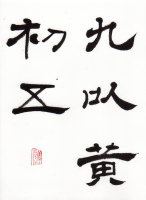 九以黄
初五